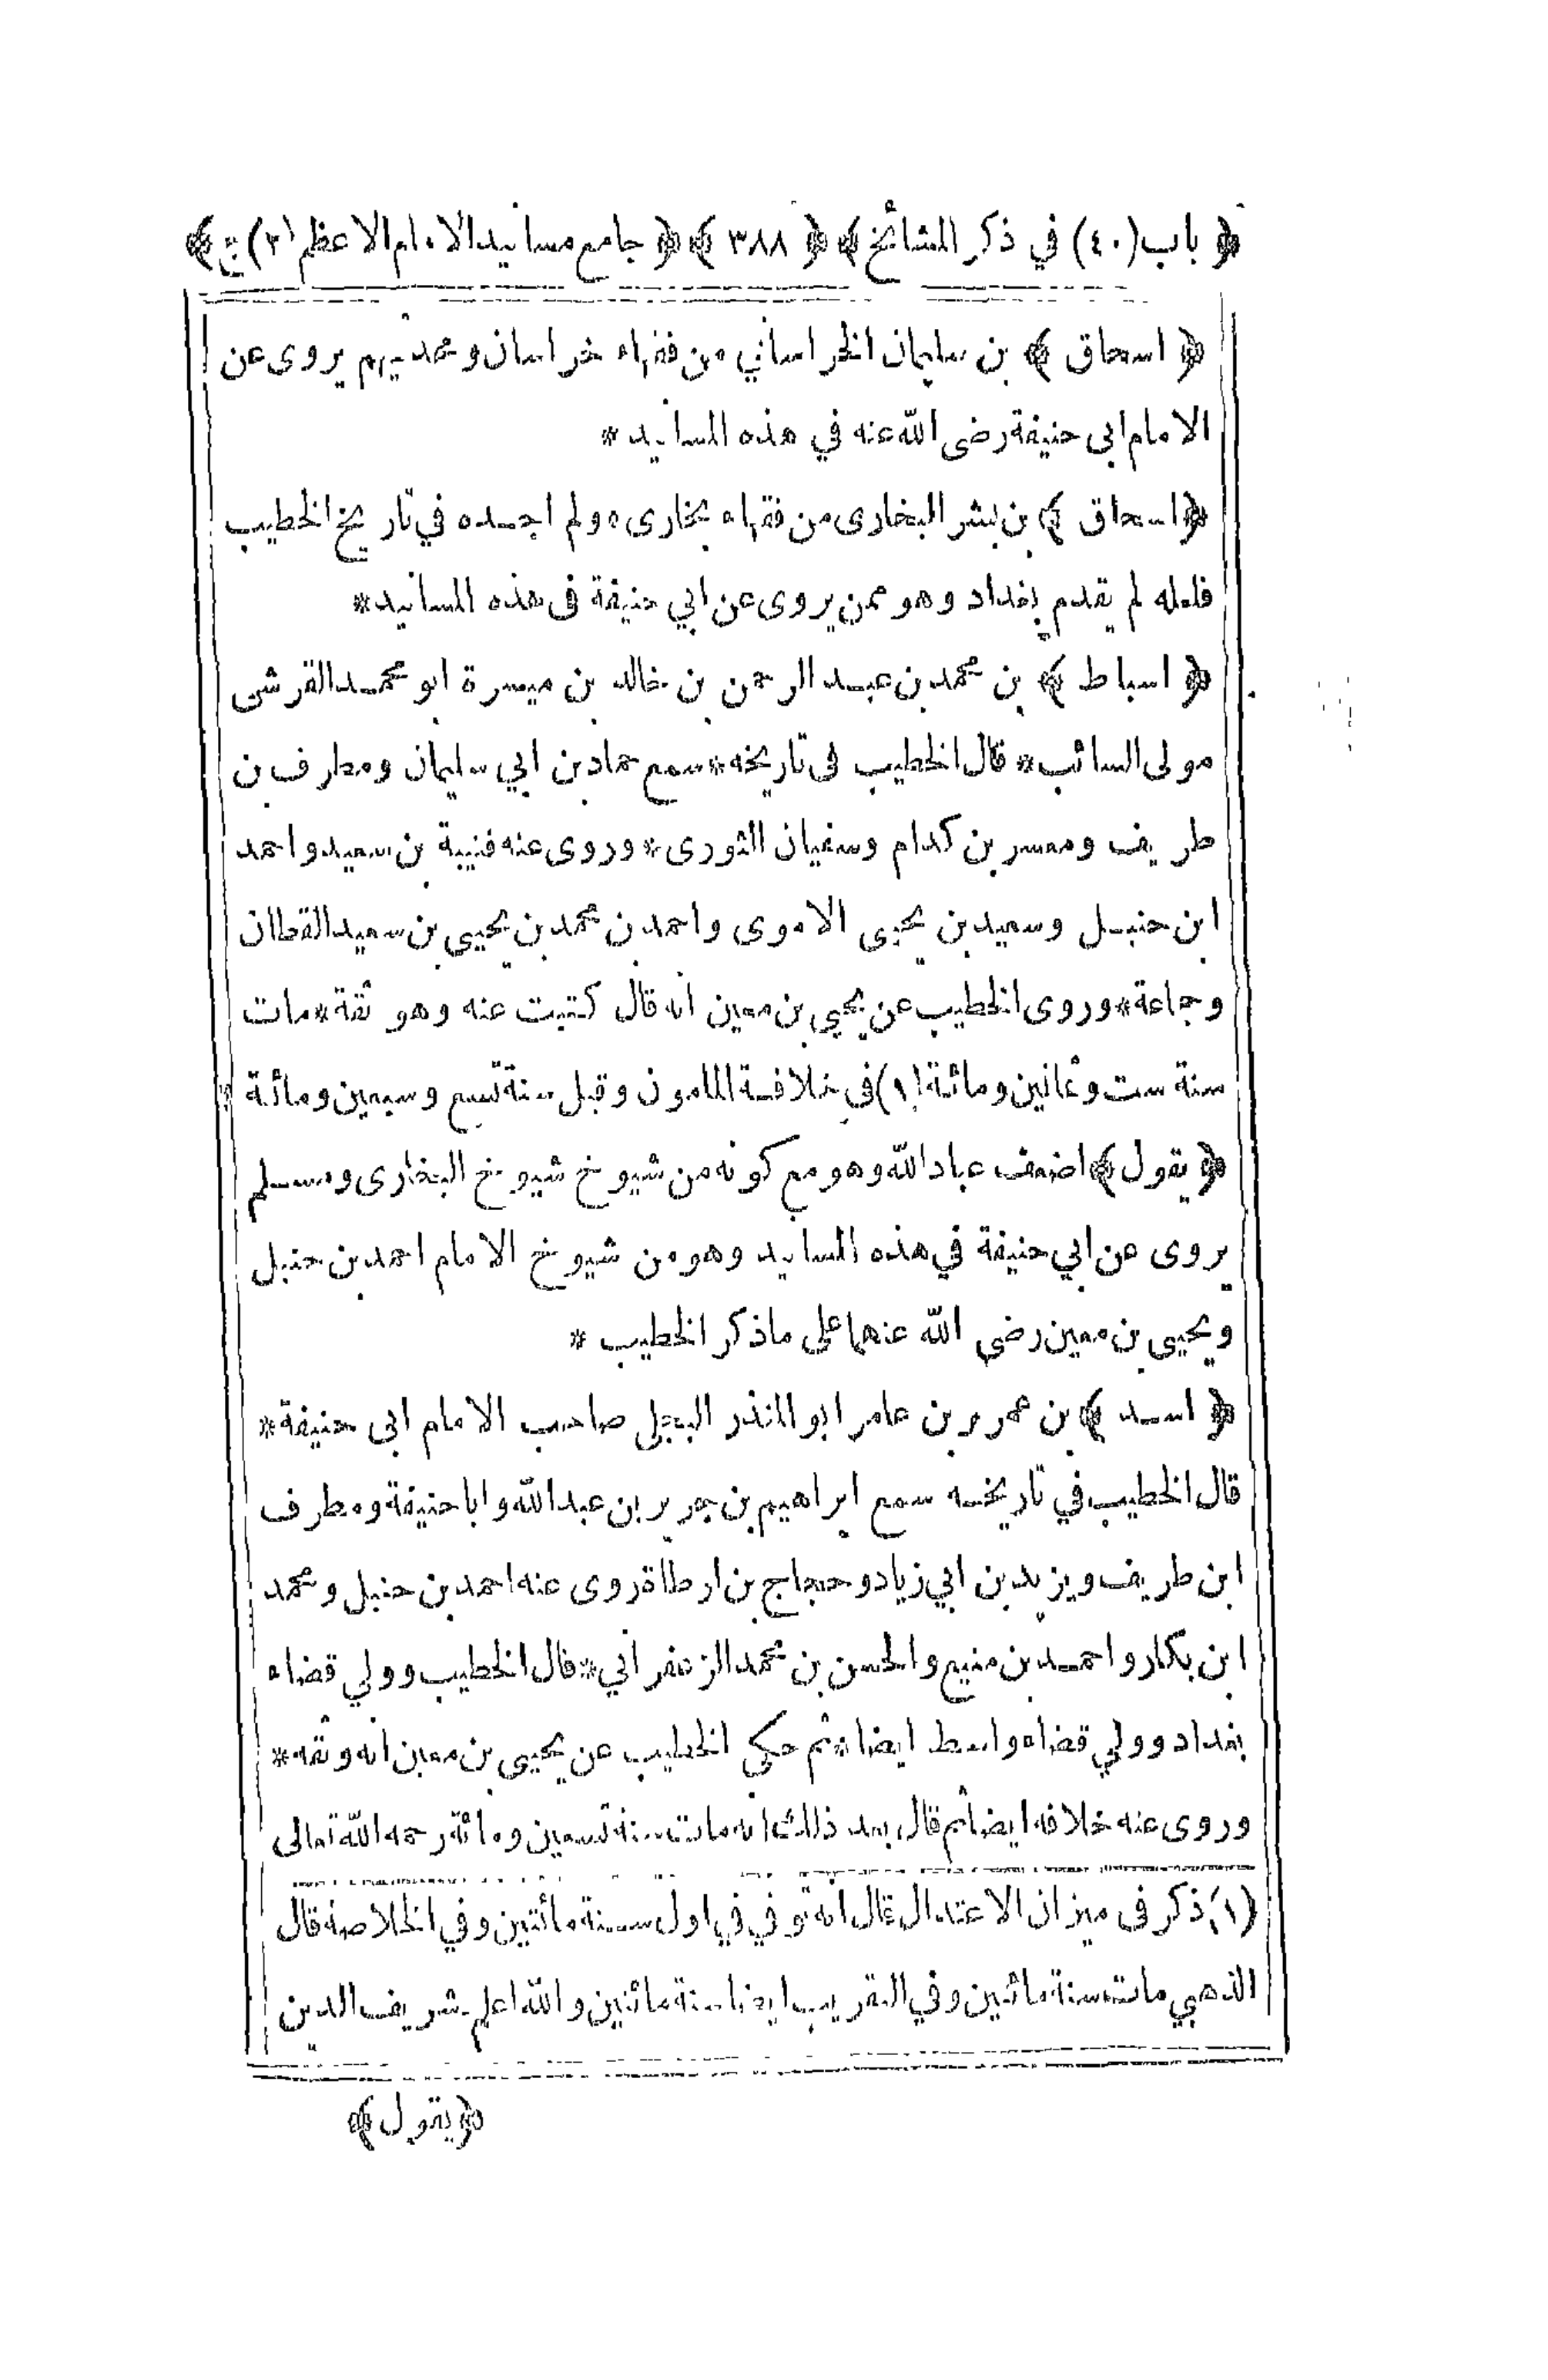 ﴿ باب (٤٠) في ذكر المشائخ ﴾ ﴿ ٣٨٨ ﴾ ﴿ جامع مسانيد الامام الاعظم (٢) ج ﴾
﴿ اسحاق ﴾ بن سليمان الخراساني من فقهاء خراسان ومحدثيهم يروى عن
الامام ابى حنيفة رضى الله عنه في هذه المسانيد *
﴿ اسحاق ﴾ بن بشر البخارى من فقهاء بخارى ه ولم اجده في تاريخ الخطيب
فلعله لم يقدم بغداد وهو ممن يروى عن ابي حنيفة فى هذه المسانيد *
﴿ اسباط ﴾ بن محمد بن عبد الرحمن بن خالد بن ميسرة ابو محمد القرشى
مولى السائب * قال الخطيب فى تاريخه * سمع حماد بن ابي سليمان ومطرف بن
طريف ومسعر بن كدام وسفيان الثورى * وروى عنه قتيبة بن سعيد واحمد
ابن حنبل وسعيد بن يحيى الاموى واحمد بن محمد بن يحيى بن سعيد القطان
وجماعة * وروى الخطيب عن يحيى بن معين انه قال كتبت عنه وهو ثقة * مات
سنة ست وثمانين ومائة (١) في خلافة المامون وقبل سنة تسع وسبعين ومائة *
﴿ يقول ﴾ اضعف عباد الله وهو مع كونه من شيوخ شيوخ البخارى ومسلم
يروى عن ابي حنيفة في هذه المسانيد وهو من شيوخ الامام احمد بن حنبل
ويحيى بن معين رضى الله عنهما على ما ذكر الخطيب *
﴿ اسد ﴾ بن عمرو بن عامر ابو المنذر البجلى صاحب الامام ابى حنيفة *
قال الخطيب في تاريخه سمع ابراهيم بن جرير بن عبد الله وابا حنيفة ومطرف
ابن طريف ويزيد بن ابي زياد وحجاج بن ارطاة روى عنه احمد بن حنبل ومحمد
ابن بكار واحمد بن منيع والحسن بن محمد الزعفراني * قال الخطيب وولي قضاء
بغداد وولي قضاء واسط ايضا * ثم حكى الخطيب عن يحيى بن معين انه وثقه *
وروى عنه خلافه ايضا ثم قال بعد ذلك انه مات سنة تسعين ومائة رحمه الله تعالى
(١) ذكر فى ميزان الاعتدال قال انه توفي في اول سنة مائتين وفي الخلاصة قال
الذهبي مات سنة مائتين وفي التقريب ايضا سنة مائتين والله اعلم شريف الدين
﴿ يقول ﴾